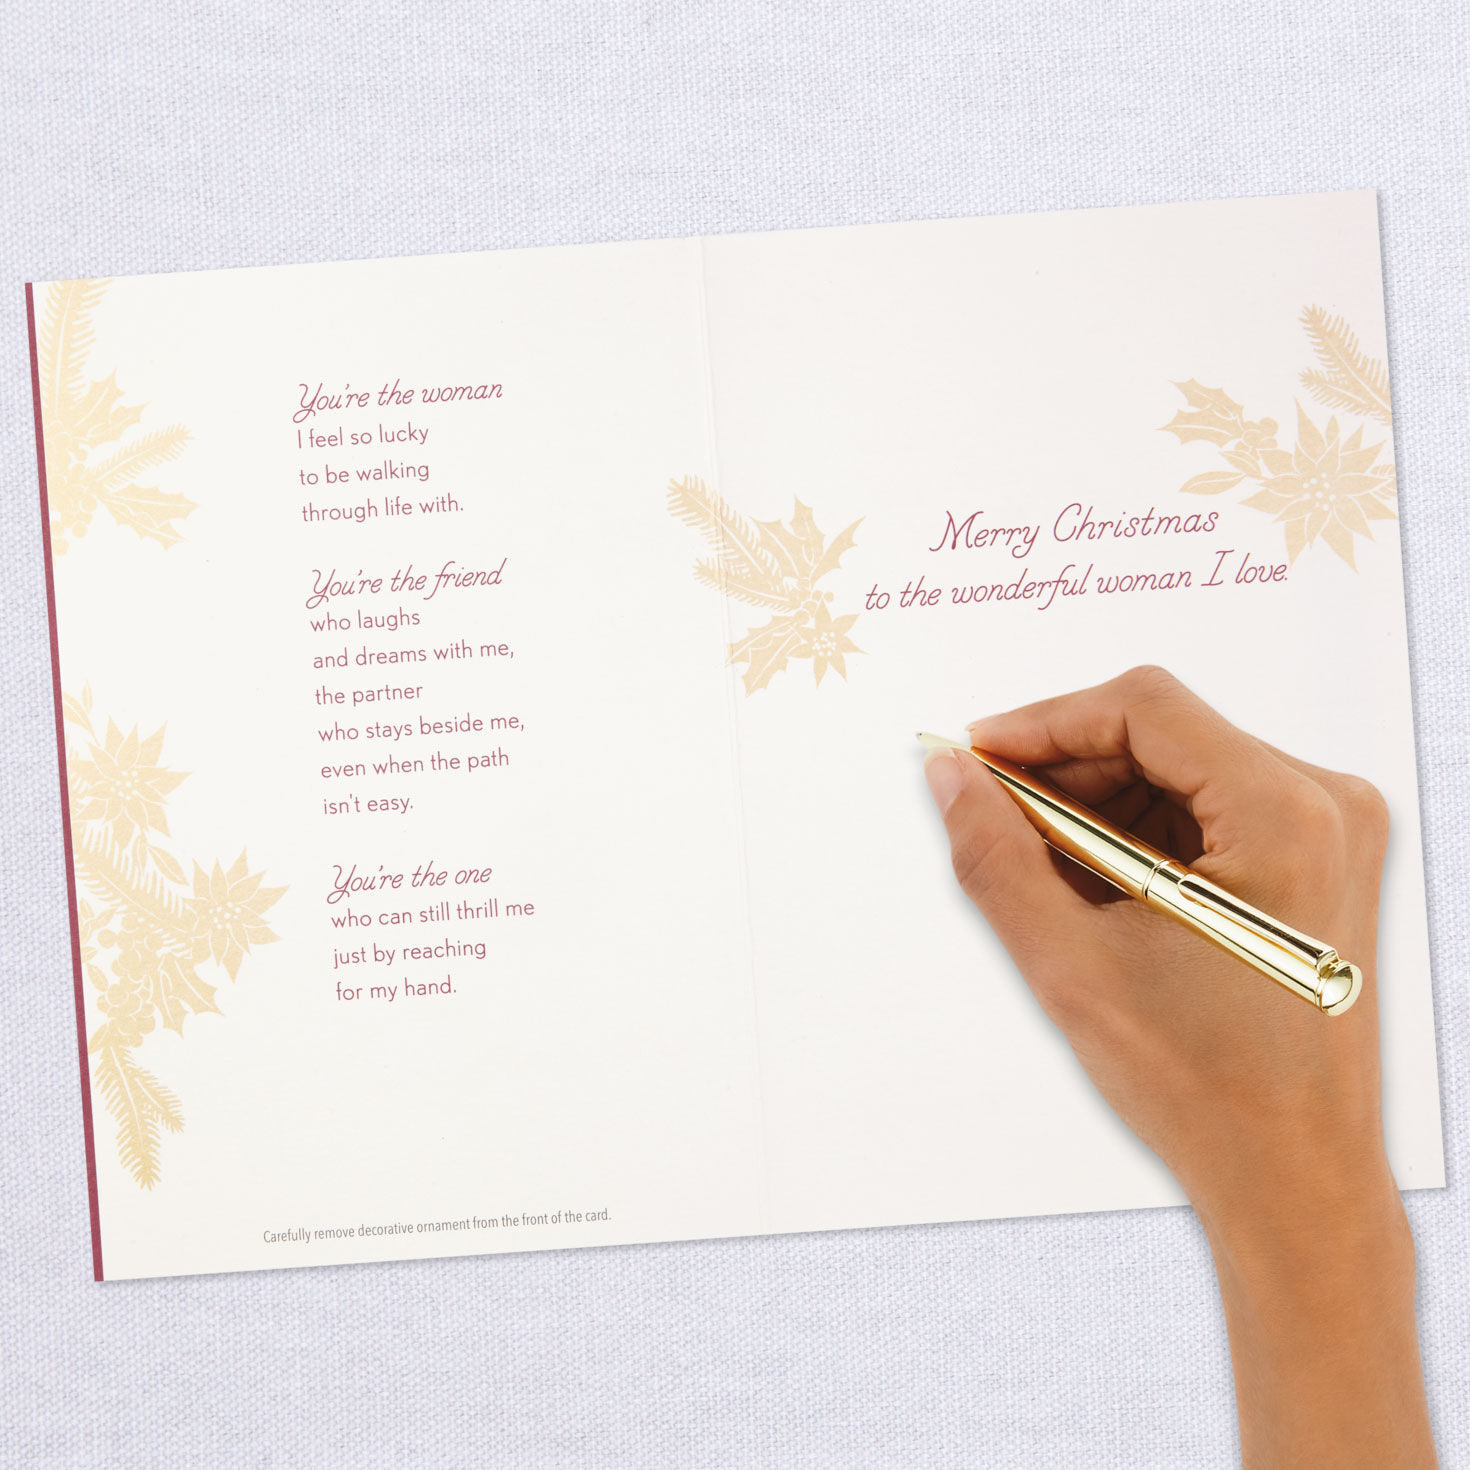 You're the woman
I feel so lucky
to be walking
through life with.
You're the friend
who laughs
and dreams with me,
the partner
who stays beside me,
even when the path
isn't easy.
You're the one
who can still thrill me
just by reaching
for my hand.
Carefully remove decorative ornament from the front of the card.
Merry Christmas
to the wonderful woman I love.